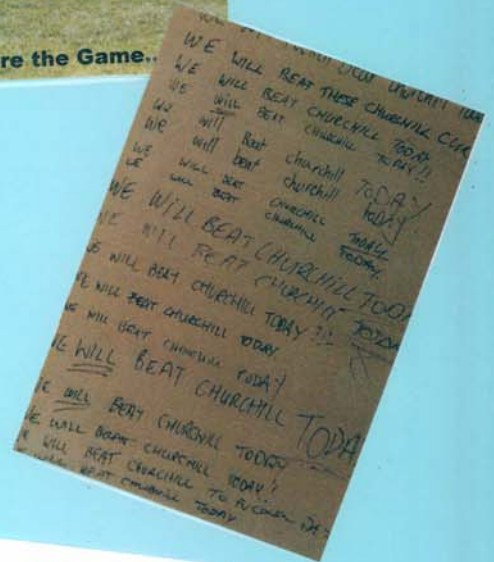 re the Game..
WE WILL BEAT THESE CHURCHILL
WE WILL BEAT CHURCHILL TODAY
WE WILL BEAT CHURCHILL TODAY!!
We will Beat churchill TODAY
We will beat churchill TODAY
WE WILL BEAT CHURCHILL TODAY
WE WILL BEAT CHURCHILL TODAY.
WE WILL BEAT CHURCHILL TODA
WE WILL BEAT CHURCHILL TODA
WE WILL BEAT CHURCHILL TODAY !!!
WE WILL BEAT CHURCHILL TODAY
WE WILL BEAT CHURCHILL TODAY
WE WILL BEAT CHURCHILL TODA
WE WILL BEAT CHURCHILL TODAY
WE WILL BEAT CHURCHILL TODAY!
WILL BEAT CHURCHILL TO
WILL BEAT CHURCHILL TODAY